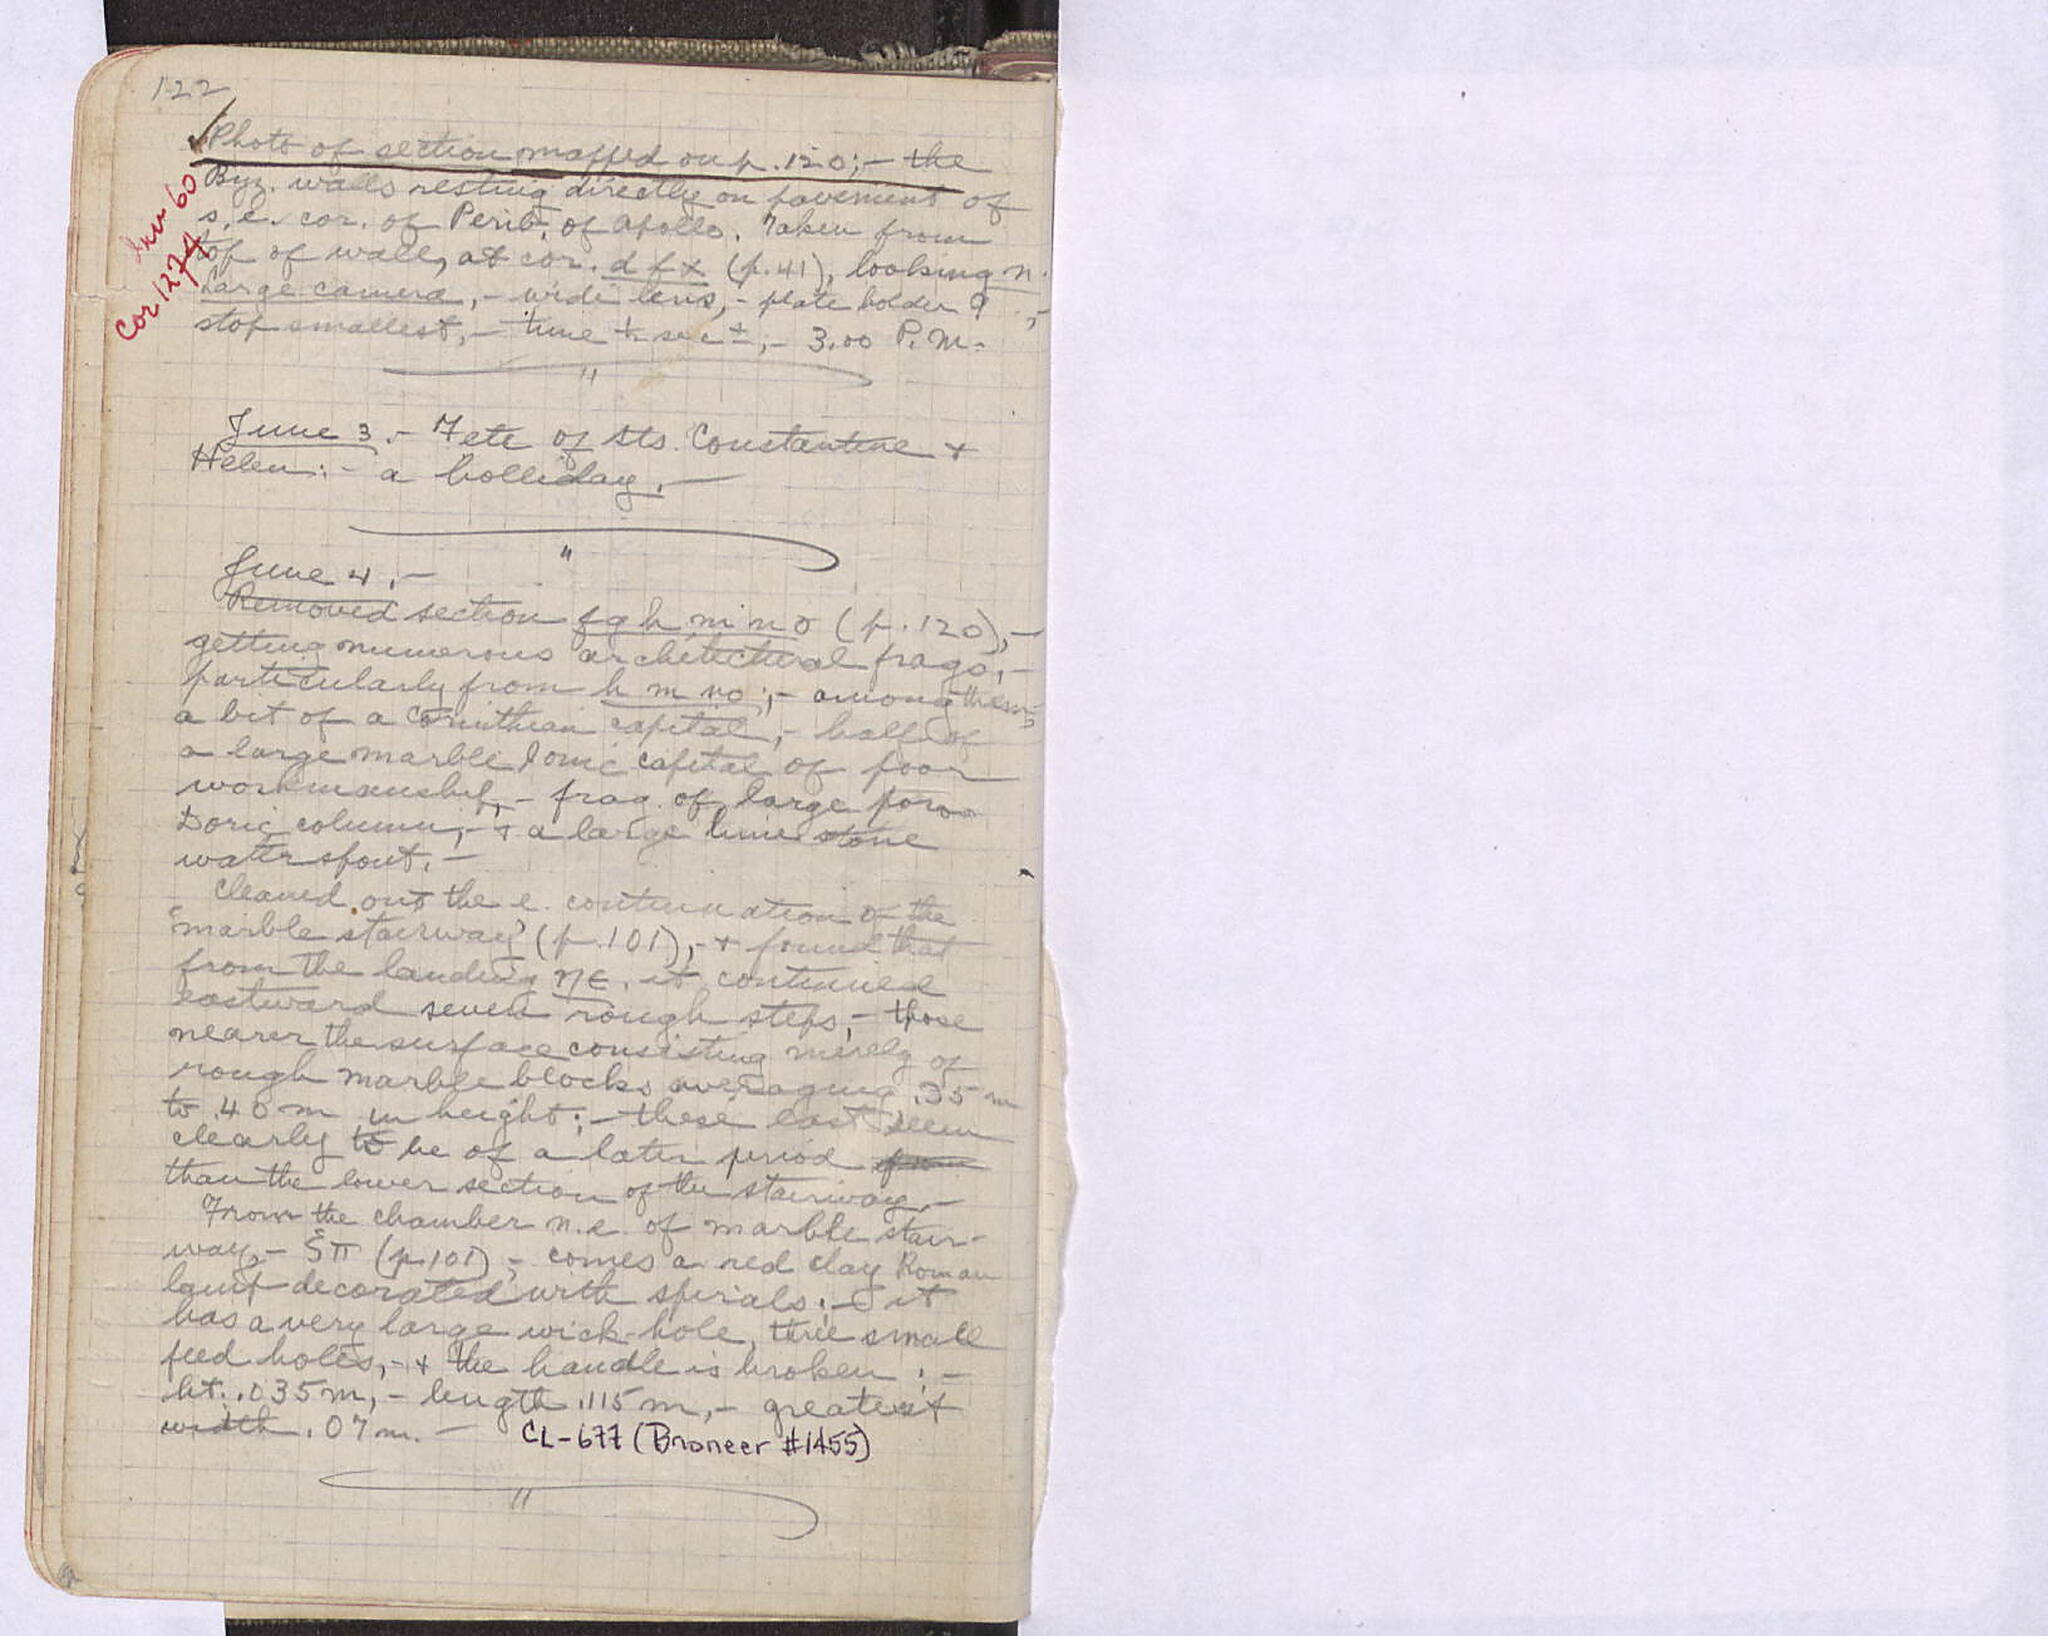 122
Photo of section mapped on p. 120;- the
Byz. walls resting directly on pavement of
s.e. cor. of Perib. of Apollo. Taken from
top of wall, at cor. d f x (p. 41), looking n.
Large camera,- wide lens,- plate holder 9,-
stop smallest,- time ½ sec ±,- 3.00 P.M.
Inv 60
Cor 1274
"
June 3.- Fete of Sts. Constantine +
Helen:- a holliday.-
"
June 4.-
Removed section f g h m n o (p. 120),-
getting numerous architectural frags,-
particularly from h m n o;- among them,
a bit of a Corinthian capital,- half of
a large marble Ionic capital of poor
workmanship,- frag. of large poros
Doric column,- + a large lime stone
water spout.-
Cleaned out the e. continuation of the
"marble stairway" (p. 101),- + found that
from the landing ηε, it continued
eastward seven rough steps,- those
nearer the surface consisting merely of
rough marble blocks averaging .35 m
to .40 m in height;- these last seem
clearly to be of a later period from
than the lower section of the stairway.-
From the chamber n.e. of marble stair-
way,- ξπ (p. 101),- comes a red clay Roman
lamp decorated with spirals;- it
has a very large wick-hole, three small
feed holes,- + the handle is broken:-
ht. .035 m,- length .115 m,- greatest
width .07 m.- CL-677 (Broneer #1455)
"